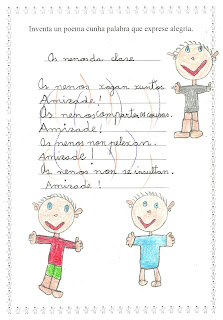 Inventa un poema cunha palabra que exprese alegría.
Os nenos da clase
Os nenos xogan xuntos
Amizade!
Os nenos comparten as cousas.
Amizade!
Os nenos non pelexan.
Amizade!
Os nenos non se insultan.
Amizade!